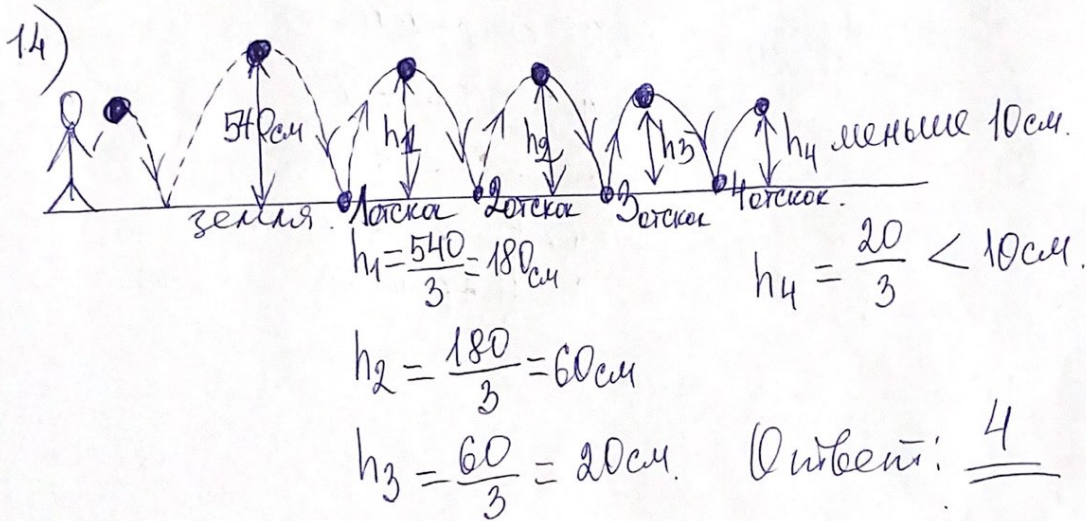 14)
540см h1 h2 h3 h4 меньше 10см.
земля. 1отскок 2отскок 3отскок 4отскок.
h1 = 540/3 = 180см
h4 = 20/3 < 10см.
h2 = 180/3 = 60см
h3 = 60/3 = 20см. Ответ: 4